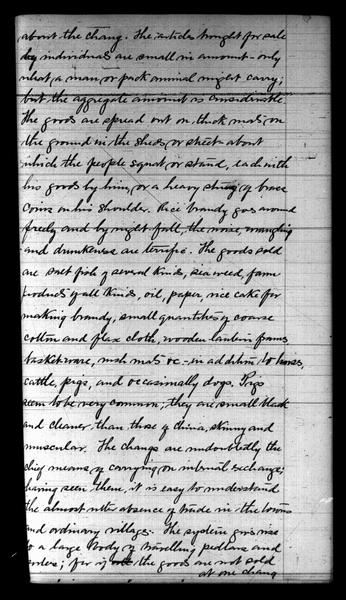 about the chang. The articles brought for sale
by individuals are small in amount - only
what a man or pack animal might carry;
but the aggregate amount is considerable.
The goods are spread out on thick mats, on
the ground in the sheds, or street about
which the people squat or stand, each with
his goods by him, or a heavy string of brass
coins on his shoulder. Rice brandy goes around
freely and by night-fall, the noise, wrangling
and drunkenness are terrific. The goods sold
are salt fish of several kinds, sea weed, farm
products of all kinds, oil, paper, rice cake for
making brandy, small quantities of coarse
cotton and flax cloth, wooden frames
basket ware, rush mats &c - in addition to horses,
cattle, pigs, and occasionally dogs. Pigs
seem to be very common; they are small black
and cleaner than those of China, skinny and
muscular. The changs are undoubtedly the
chief means of carrying on internal exchange;
having seen them, it is easy to understand
the almost utter absence of trade in the towns
and ordinary villages. The system gives rise
to a large body of travelling pedlars and
porters; for if all the goods are not sold
at one chang